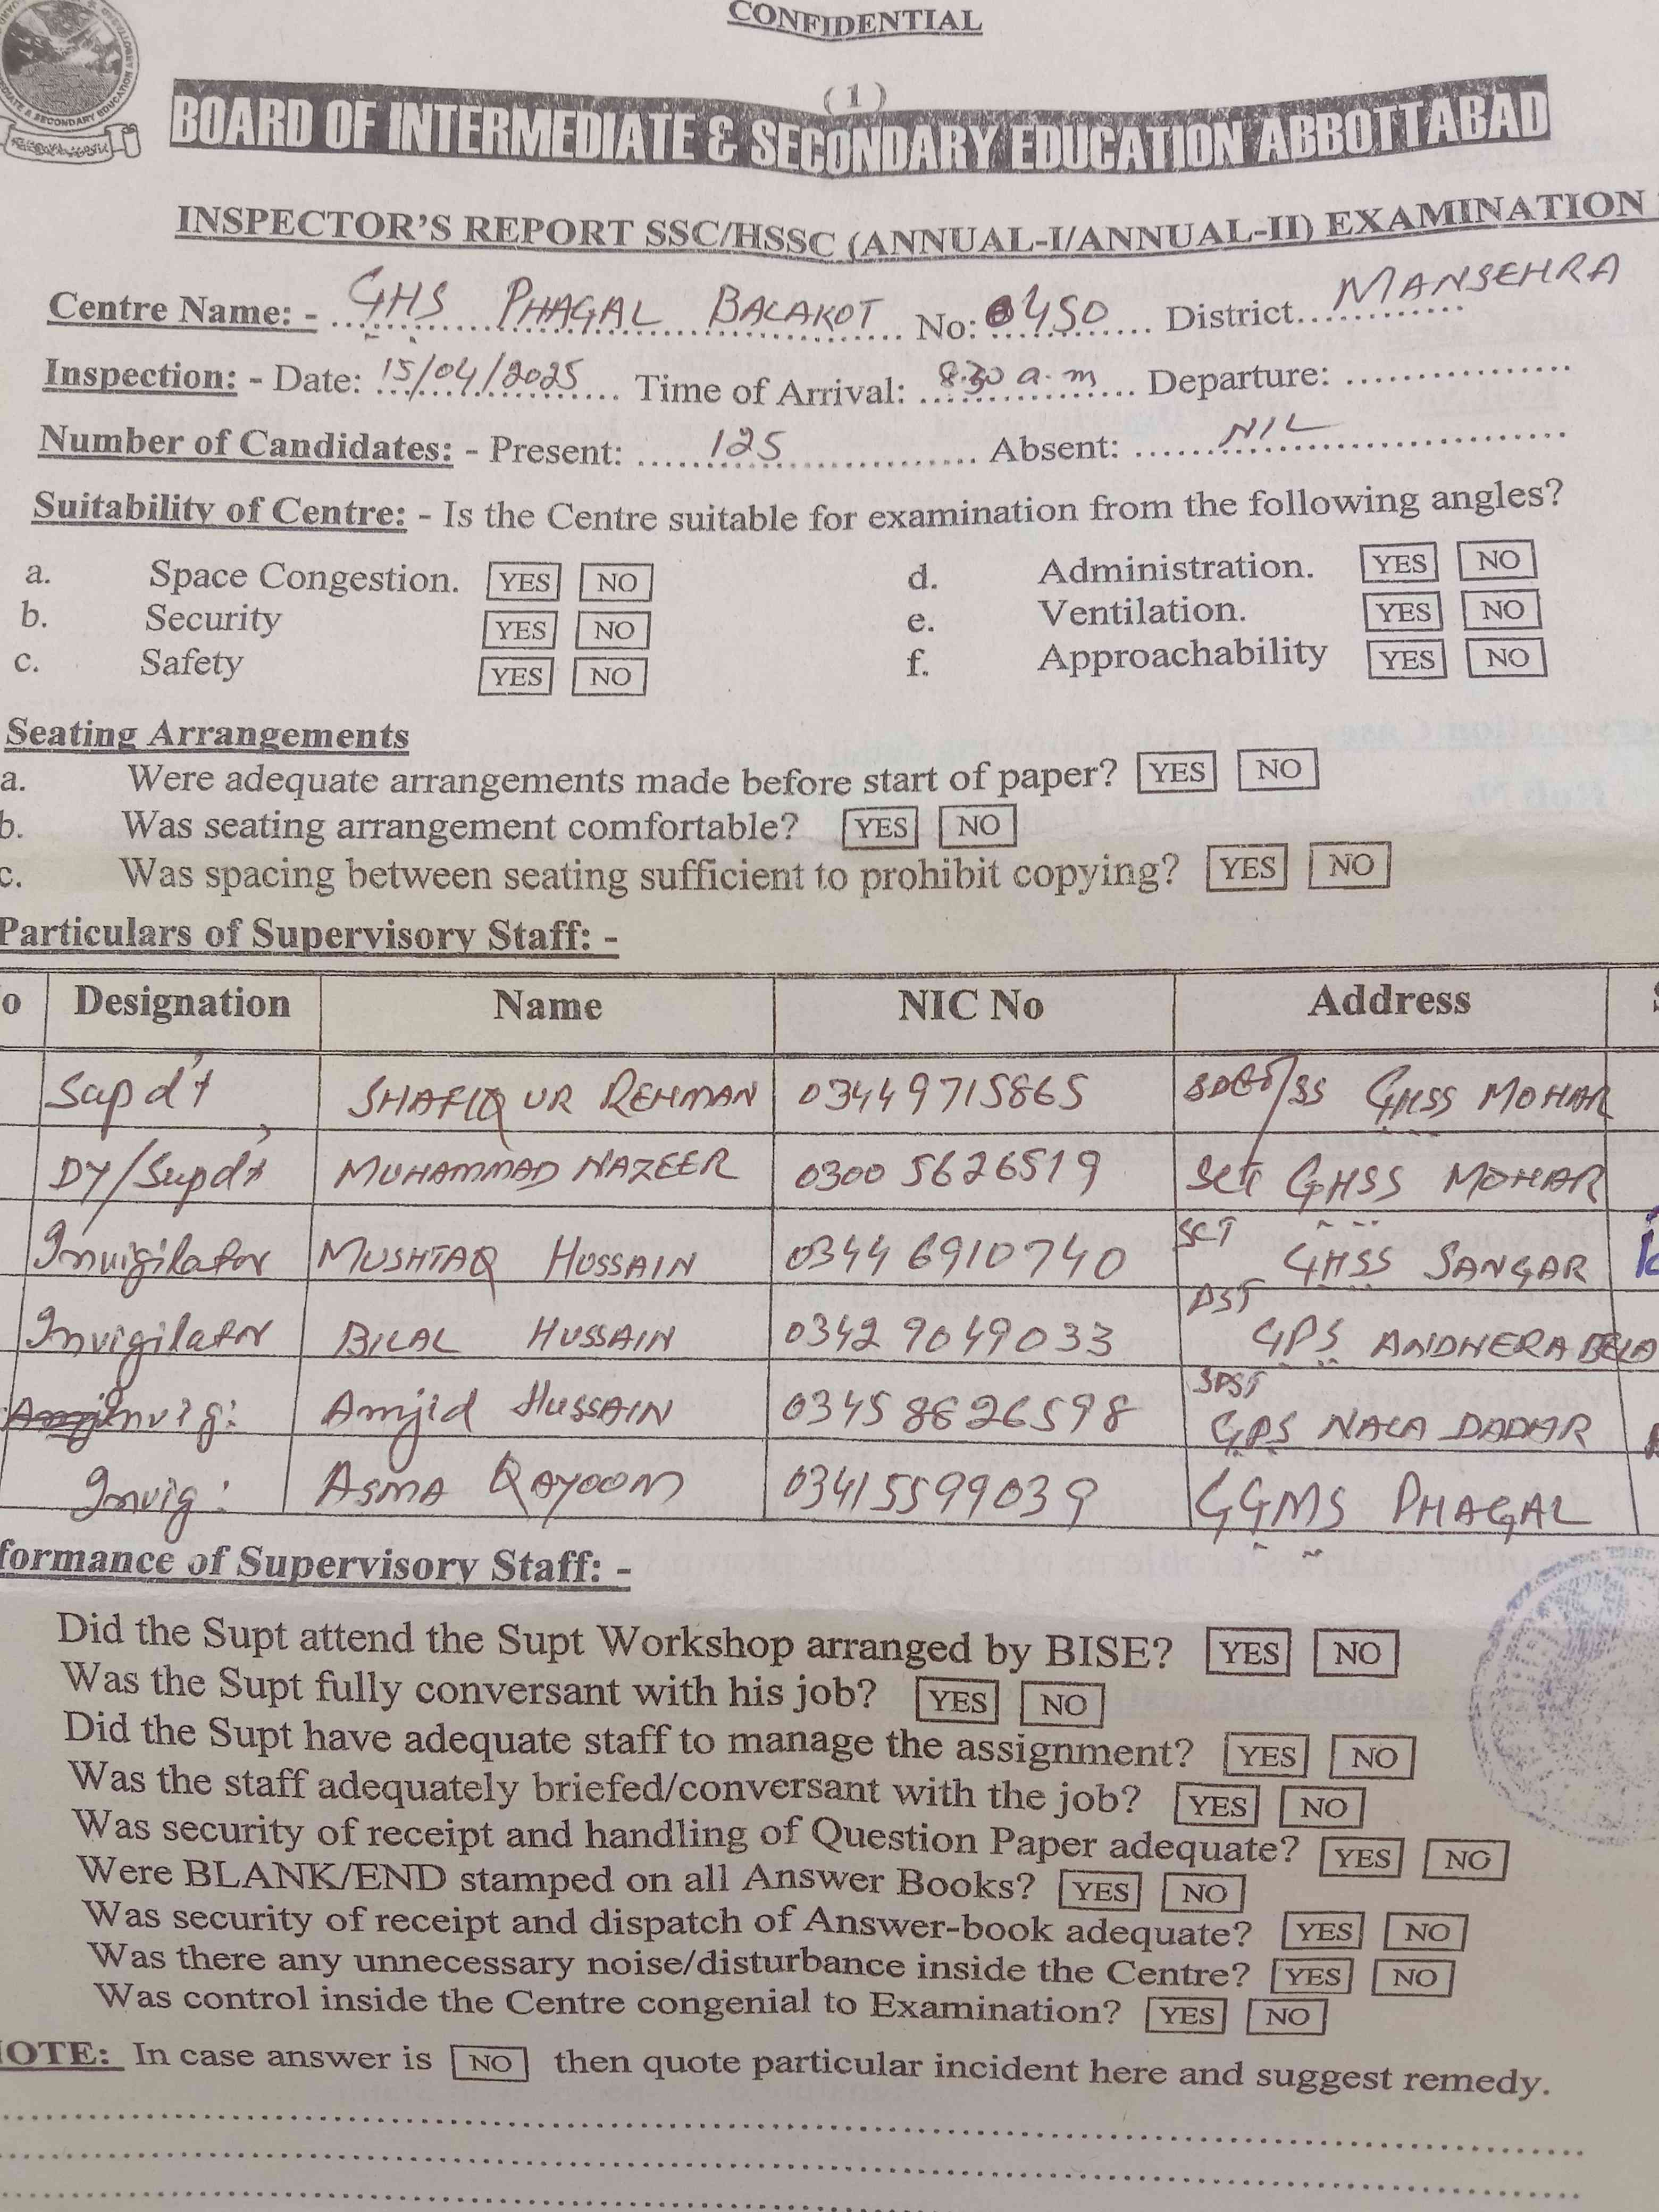 CONFIDENTIAL
(1)
BOARD OF INTERMEDIATE & SECONDARY EDUCATION ABBOTTABAD
INSPECTOR'S REPORT SSC/HSSC (ANNUAL-I/ANNUAL-II) EXAMINATION
Centre Name: - GHS PHAGAL BALAKOT No: 0450 District MANSEHRA
Inspection: - Date: 15/04/2025 Time of Arrival: 8:30 a.m Departure:
Number of Candidates: - Present: 125 Absent: NIL
Suitability of Centre: - Is the Centre suitable for examination from the following angles?
a. Space Congestion. YES NO d. Administration. YES NO
b. Security YES NO e. Ventilation. YES NO
c. Safety YES NO f. Approachability YES NO
Seating Arrangements
a. Were adequate arrangements made before start of paper? YES NO
b. Was seating arrangement comfortable? YES NO
c. Was spacing between seating sufficient to prohibit copying? YES NO
Particulars of Supervisory Staff: -
o Designation Name NIC No Address
Supd't SHAFIQ UR REHMAN 03449715865 GHSS MOHAR
DY/Supd't MUHAMMAD NAZEER 0300 5626519 SCT GHSS MOHAR
Invigilator MUSHTAQ HUSSAIN 0344 6910740 SCT GHSS SANGAR
Invigilator BILAL HUSSAIN 0342 9049033 PST GPS ANDHERA BELA
Invig: Amjid HUSSAIN 0345 8826598 SPST GPS NALA DADAR
Invig: ASMA QAYOOM 03415599039 GGMS PHAGAL
formance of Supervisory Staff: -
Did the Supt attend the Supt Workshop arranged by BISE? YES NO
Was the Supt fully conversant with his job? YES NO
Did the Supt have adequate staff to manage the assignment? YES NO
Was the staff adequately briefed/conversant with the job? YES NO
Was security of receipt and handling of Question Paper adequate? YES NO
Were BLANK/END stamped on all Answer Books? YES NO
Was security of receipt and dispatch of Answer-book adequate? YES NO
Was there any unnecessary noise/disturbance inside the Centre? YES NO
Was control inside the Centre congenial to Examination? YES NO
OTE: In case answer is NO then quote particular incident here and suggest remedy.